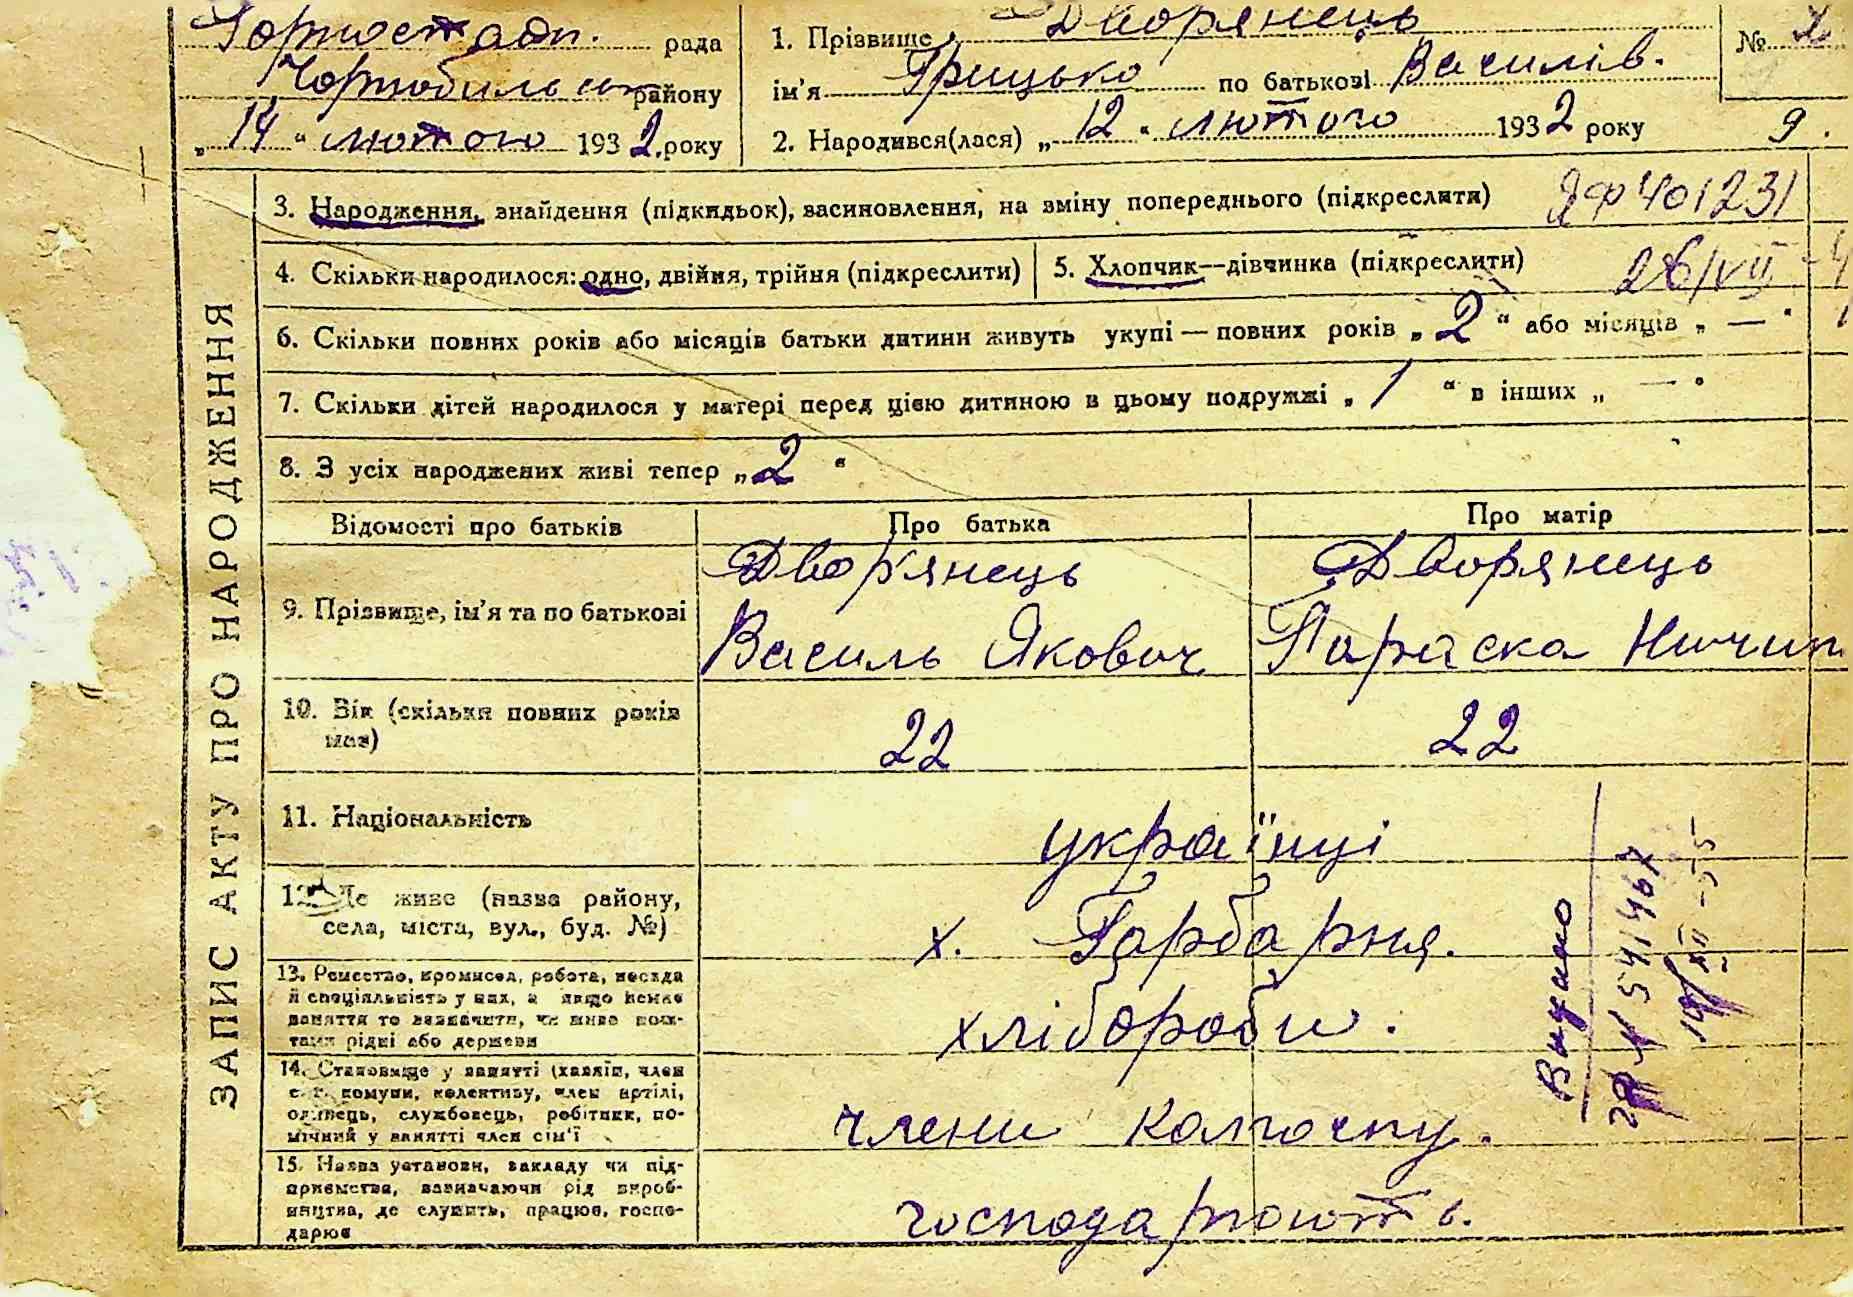 Горностайп. рада
Чорнобильськ району
„14“ лютого 1932 року
1. Прізвище Дворянець
ім'я Грицько по батькові Василів.
2. Народився(лася) „12“ лютого 1932 року
№ 2
9.
ЗАПИС АКТУ ПРО НАРОДЖЕННЯ
3. Народження, знайдення (підкидьок), всиновлення, на зміну попереднього (підкреслити)
ЯФ 401231
4. Скільки народилося: одно, двійня, трійня (підкреслити)
5. Хлопчик—дівчинка (підкреслити)
26/VII
6. Скільки повних років або місяців батьки дитини живуть укупі — повних років „2“ або місяців „—“
7. Скільки дітей народилося у матері перед цією дитиною в цьому подружжі „1“ в інших „—“
8. З усіх народжених живі тепер „2“
Відомості про батьків
Про батька
Про матір
9. Прізвище, ім'я та по батькові
Двор'янець
Василь Якович
Дворянець
Параска Ничип
10. Вік (скільки повних років має)
22
22
11. Національність
українці
12. Де живе (назва району,
села, міста, вул., буд. №)
х. Гарбарня.
13. Ремество, промисел, робота, посада
й спеціяльність у них, а якщо немає
заняття то зазначити, чи живе кош-
тами рідні або держави
хлібороби.
14. Становище у занятті (хазяїн, член
с.-г. комуни, колективу, член артілі,
одинець, службовець, робітник, по-
мічний у занятті член сім'ї
члени колгоспу.
15. Назва установи, закладу чи під-
приємства, зазначаючи рід вироб-
ництва, де служить, працює, госпо-
дарює
господарюють.
Видано
541467
19/XII-55